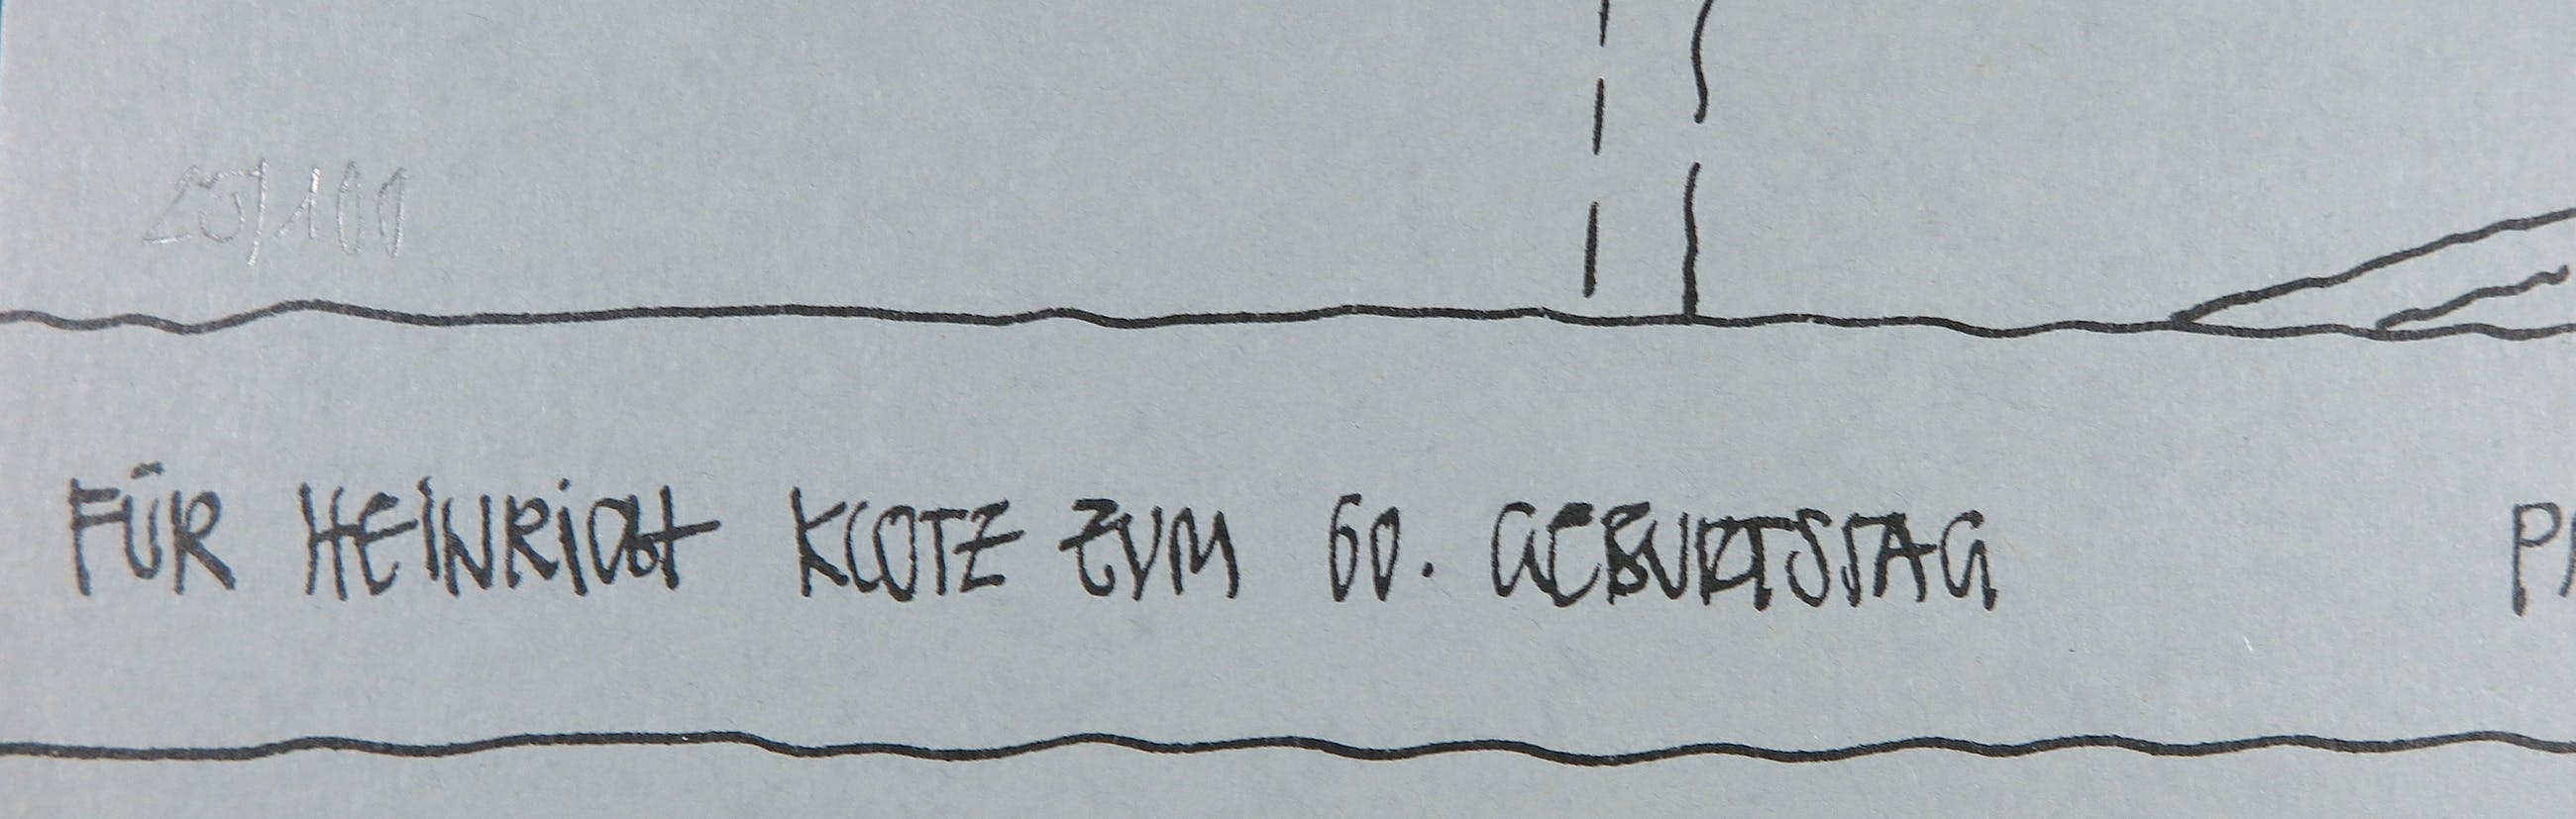 25/100
FÜR HEINRICH KLOTZ ZUM 60. GEBURTSTAG